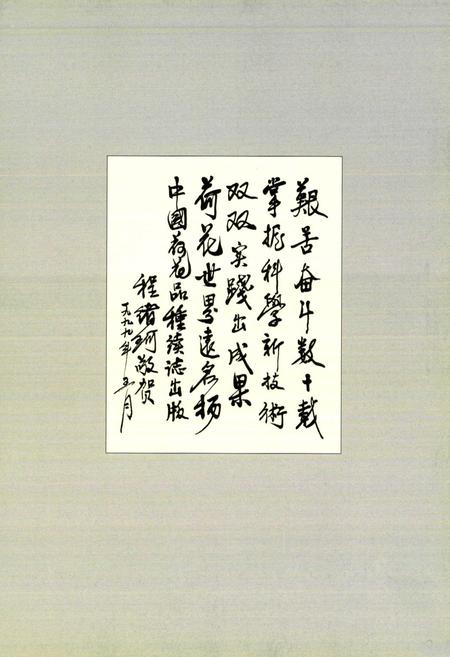 艱苦奋斗数十載
掌握科學新技術
双双实踐出成果
荷花世界遠名揚
中國荷花品種续誌出版
程绪珂敬贺
一九九九年五月